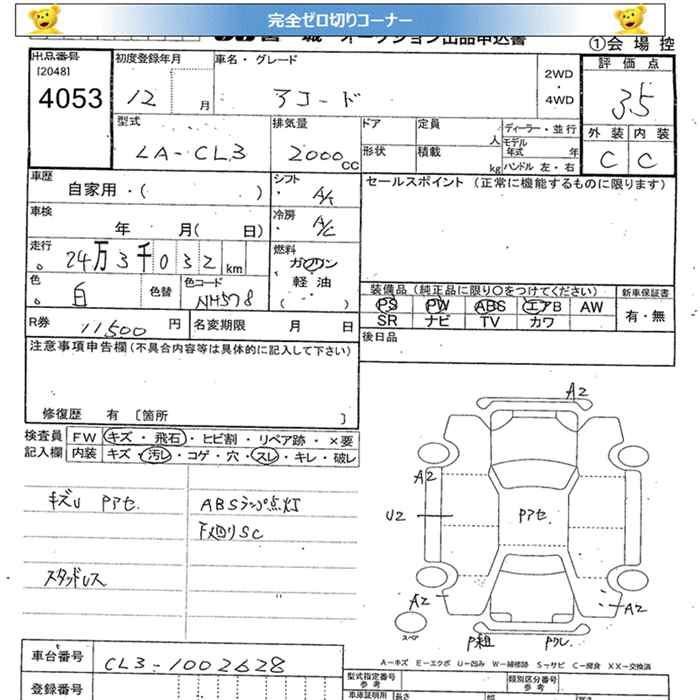 完全ゼロ切りコーナー
オークション出品申込書
①会場控
出品番号
[2048]
4053
初度登録年月
12 月
車名・グレード
アコード
2WD
・
4WD
評価点
3.5
外装 内装
C C
型式
LA-CL3
排気量
2000cc
ドア
形状
定員 人
積載 kg
ディーラー・並行
モデル年式 年
ハンドル 左・右
車歴
自家用・( )
シフト
A/t
セールスポイント(正常に機能するものに限ります)
車検
年 月( 日)
冷房
A/C
走行
24万3千032km
燃料
ガソリン
軽油
( )
色
白
色替
色コード
NH578
装備品(純正品に限り○をつけてください)
PS PW ABS エアB AW
SR ナビ TV カワ
新車保証書
有・無
R券
11500円
名変期限 月 日
後日品
注意事項申告欄(不具合内容等は具体的に記入して下さい)
修復歴 有 [箇所 ]
検査員
記入欄
FW キズ・飛石・ヒビ割・リペア跡・×要
内装 キズ・汚レ・コゲ・穴・スレ・キレ・破レ
キズU Pアセ
ABSランプ点灯
下廻りSC
スタッドレス
A2
A2
U2
Pアセ
A2
A2
スペア
P粗
Pワレ
A-キズ E-エクボ U-凹み W-補修跡 S-サビ C-腐食 XX-交換済
車台番号
CL3-1002628
登録番号
型式指定番号
参考
類別区分番号
参考
車庫証明用
長さ
幅
高さ